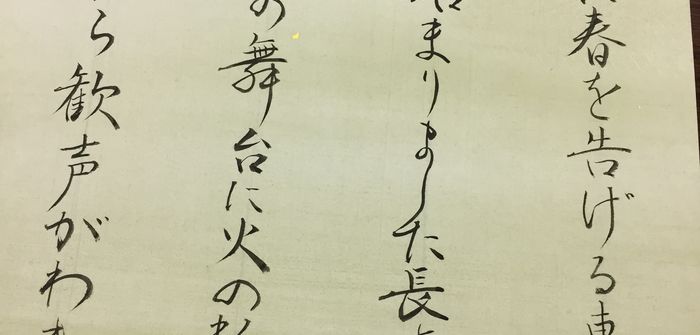 春を告げる東
始まりました長
の舞台に火の粉
ら歓声がわ